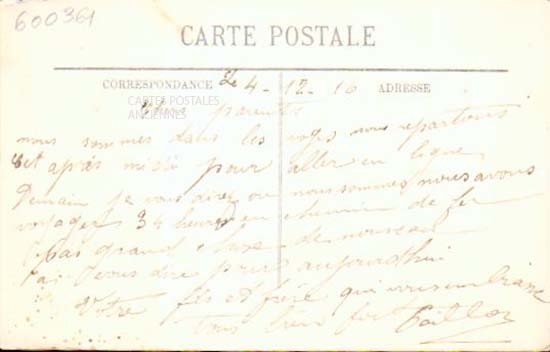 600361
CARTE POSTALE
CORRESPONDANCE
Le 4-12-16
ADRESSE
CARTES POSTALES
ANCIENNES
Chers parents
nous sommes dans les voges nous repartions
set après midi pour aller en ligne
Demain je vous direz ou nous sommes nous avons
voyager 34 heures en chemin de fer
pas grand chose de nouveau
vous dire pour aujourd'hui
Votre fils et frère qui vous embrasse
tous bien fort